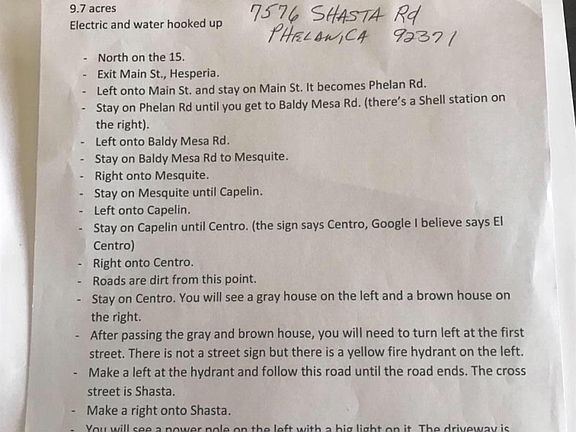 9.7 acres
Electric and water hooked up
7576 SHASTA Rd
PHELAN, CA 92371
- North on the 15.
- Exit Main St., Hesperia.
- Left onto Main St. and stay on Main St. It becomes Phelan Rd.
- Stay on Phelan Rd until you get to Baldy Mesa Rd. (there's a Shell station on
the right).
- Left onto Baldy Mesa Rd.
- Stay on Baldy Mesa Rd to Mesquite.
- Right onto Mesquite.
- Stay on Mesquite until Capelin.
- Left onto Capelin.
- Stay on Capelin until Centro. (the sign says Centro, Google I believe says El
Centro)
- Right onto Centro.
- Roads are dirt from this point.
- Stay on Centro. You will see a gray house on the left and a brown house on
the right.
- After passing the gray and brown house, you will need to turn left at the first
street. There is not a street sign but there is a yellow fire hydrant on the left.
- Make a left at the hydrant and follow this road until the road ends. The cross
street is Shasta.
- Make a right onto Shasta.
- You will see a power pole on the left with a big light on it. The driveway is